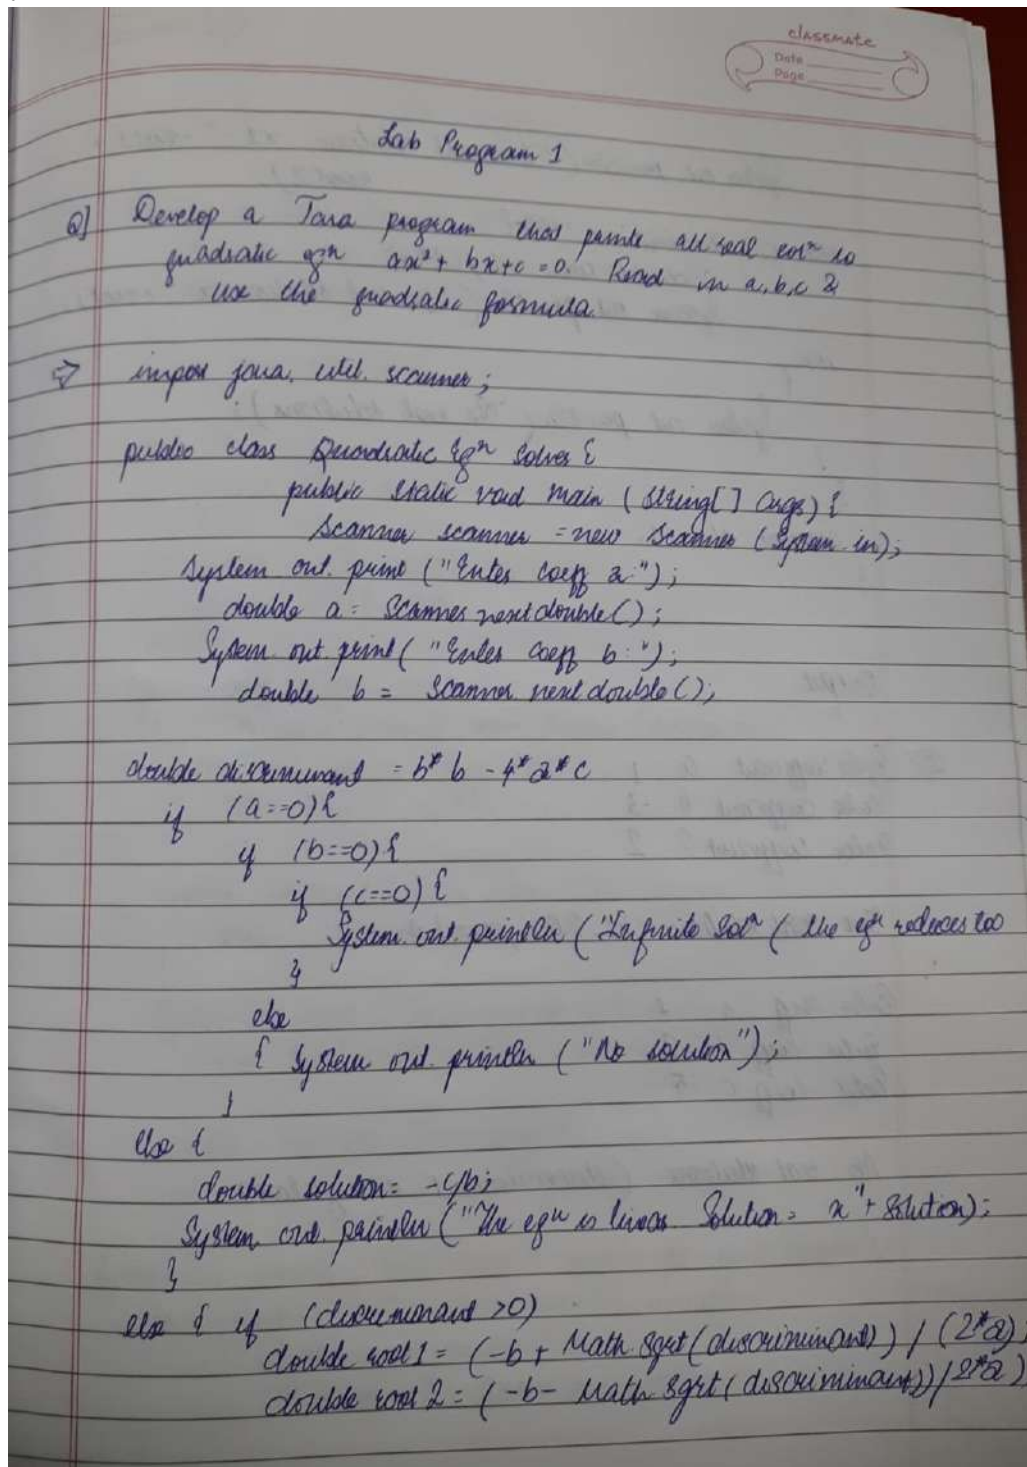 classmate
Date
Page
Lab Program 1
Q] Develop a Java program that prints all real solⁿ to
quadratic eqⁿ ax² + bx + c = 0. Read in a, b, c &
use the quadratic formula.
⇒ import java. util. scanner;
public class Quadratic Eqⁿ Solver {
public static void main (String[] args) {
Scanner scanner = new Scanner (System. in);
System. out. print ("Enter coeff a:");
double a = Scanner. next double ();
System. out. print ("Enter coeff b:");
double b = Scanner. next double ();
double discriminant = b* b - 4* a* c
if (a==0) {
if (b==0) {
if (c==0) {
System. out. println ("Infinite Solⁿ ( the eqⁿ reduces too
}
else
{ System out. println ("No solution");
}
else {
double solution = -c/b;
System. out. println ("The eqⁿ is linear. Solution = x" + Solution);
}
else { if (discriminant >0)
double root 1 = (-b + Math. sqrt (discriminant)) / (2*a)
double root 2 = (-b - Math sqrt (discriminant)) / 2*a)